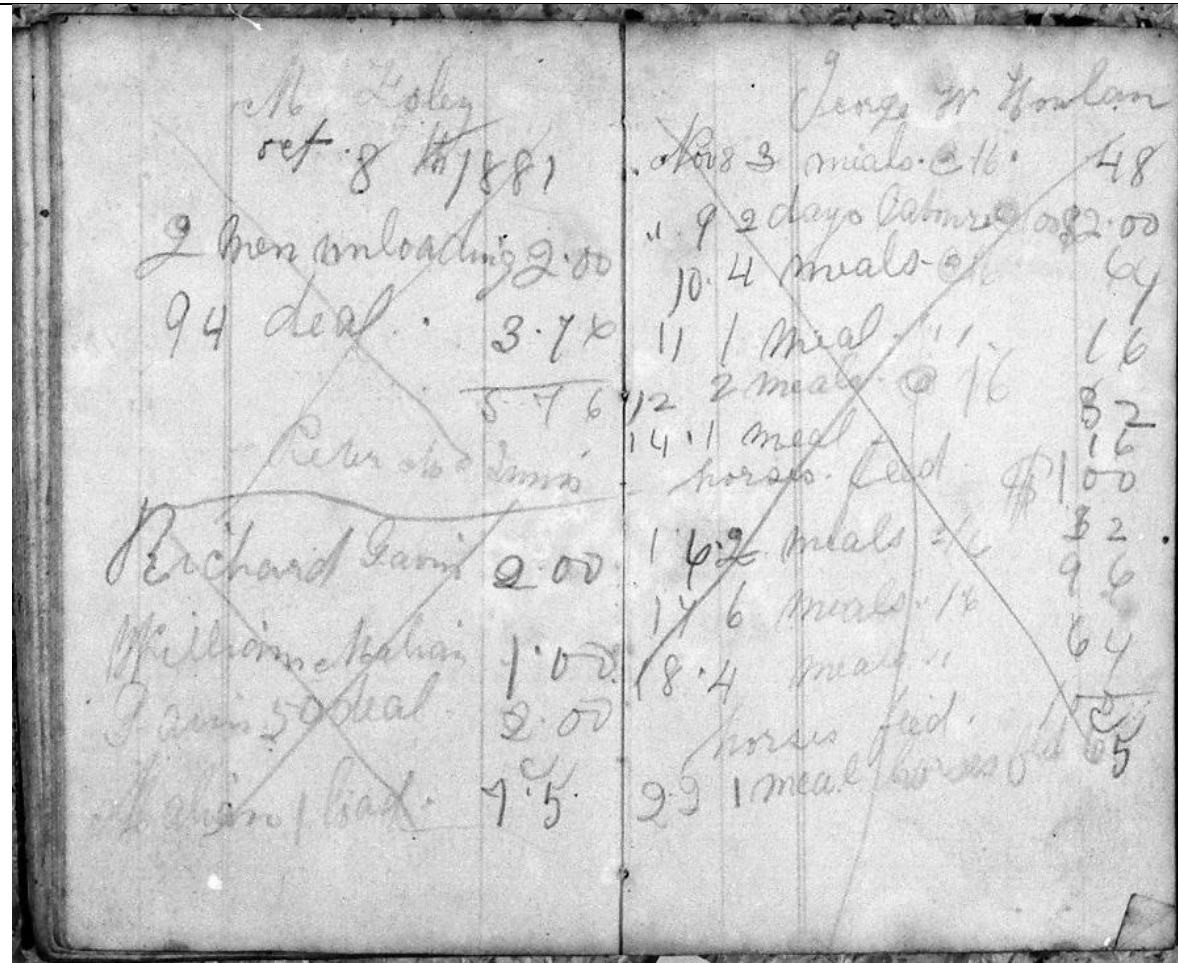 M Foley
oct. 8 th 1881
2 men unloading 2.00
94 deal. 3.76
5 76
Peter
Richard Gavin 2.00
William 1.00
Gavin 50 deal 2.00
1 load. 75
George W Howlan
Nov 8 3 mials. @ 16. 48
" 9 2 days Labour @ $2.00
10. 4 meals @ 16 64
11 1 meal " 16
12 2 meals @ 16 32
14. 1 meal - 16
horses. feed $1 00
16. 2 meals 16 32
17 6 meals. 16 96
18. 4 meals " 64
horses feed. 1 00
22 1 meal horses fed 65